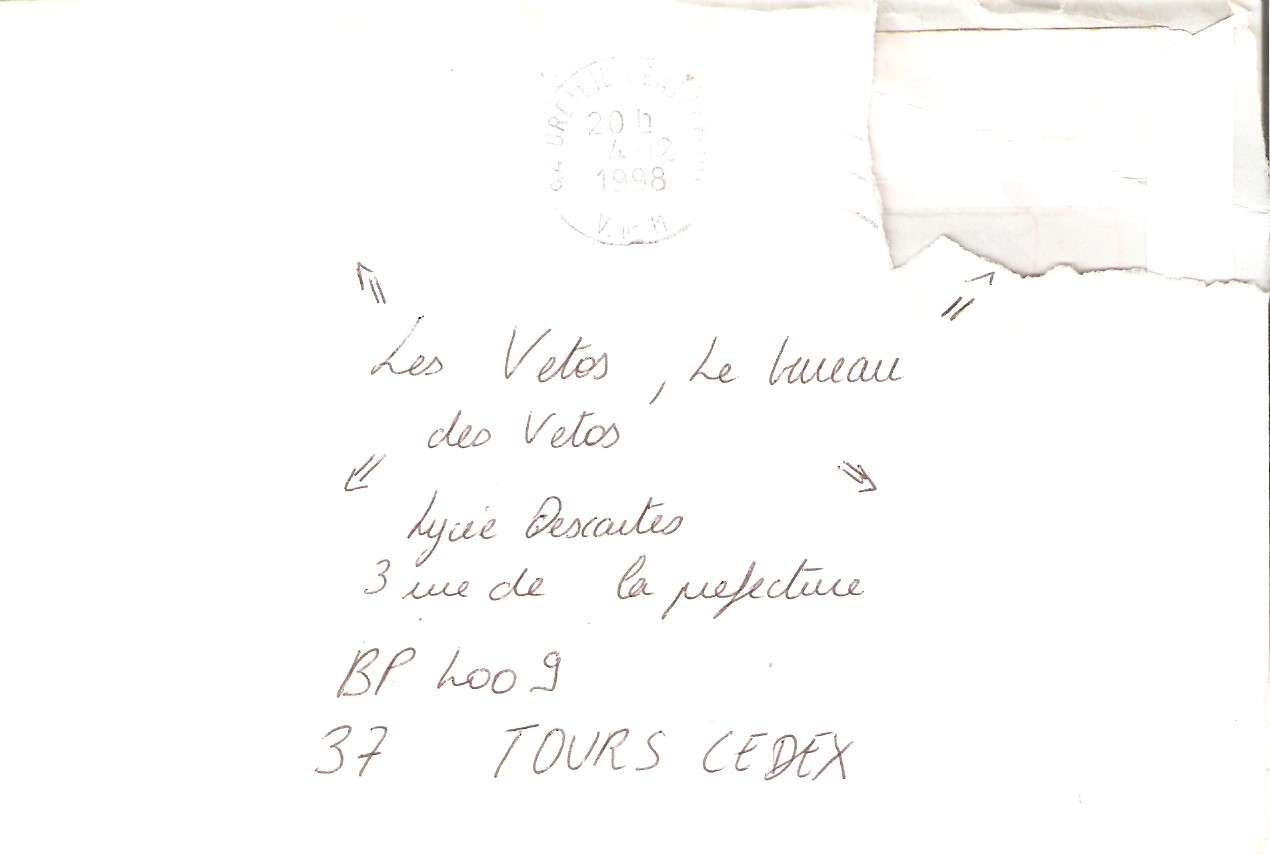 94 CRETEIL CENTRE
20 h
4-12
1998
V. DE M
Les Vetos, Le bureau
des Vetos
Lycée Descartes
3 rue de la prefecture
BP 4009
37 TOURS CEDEX